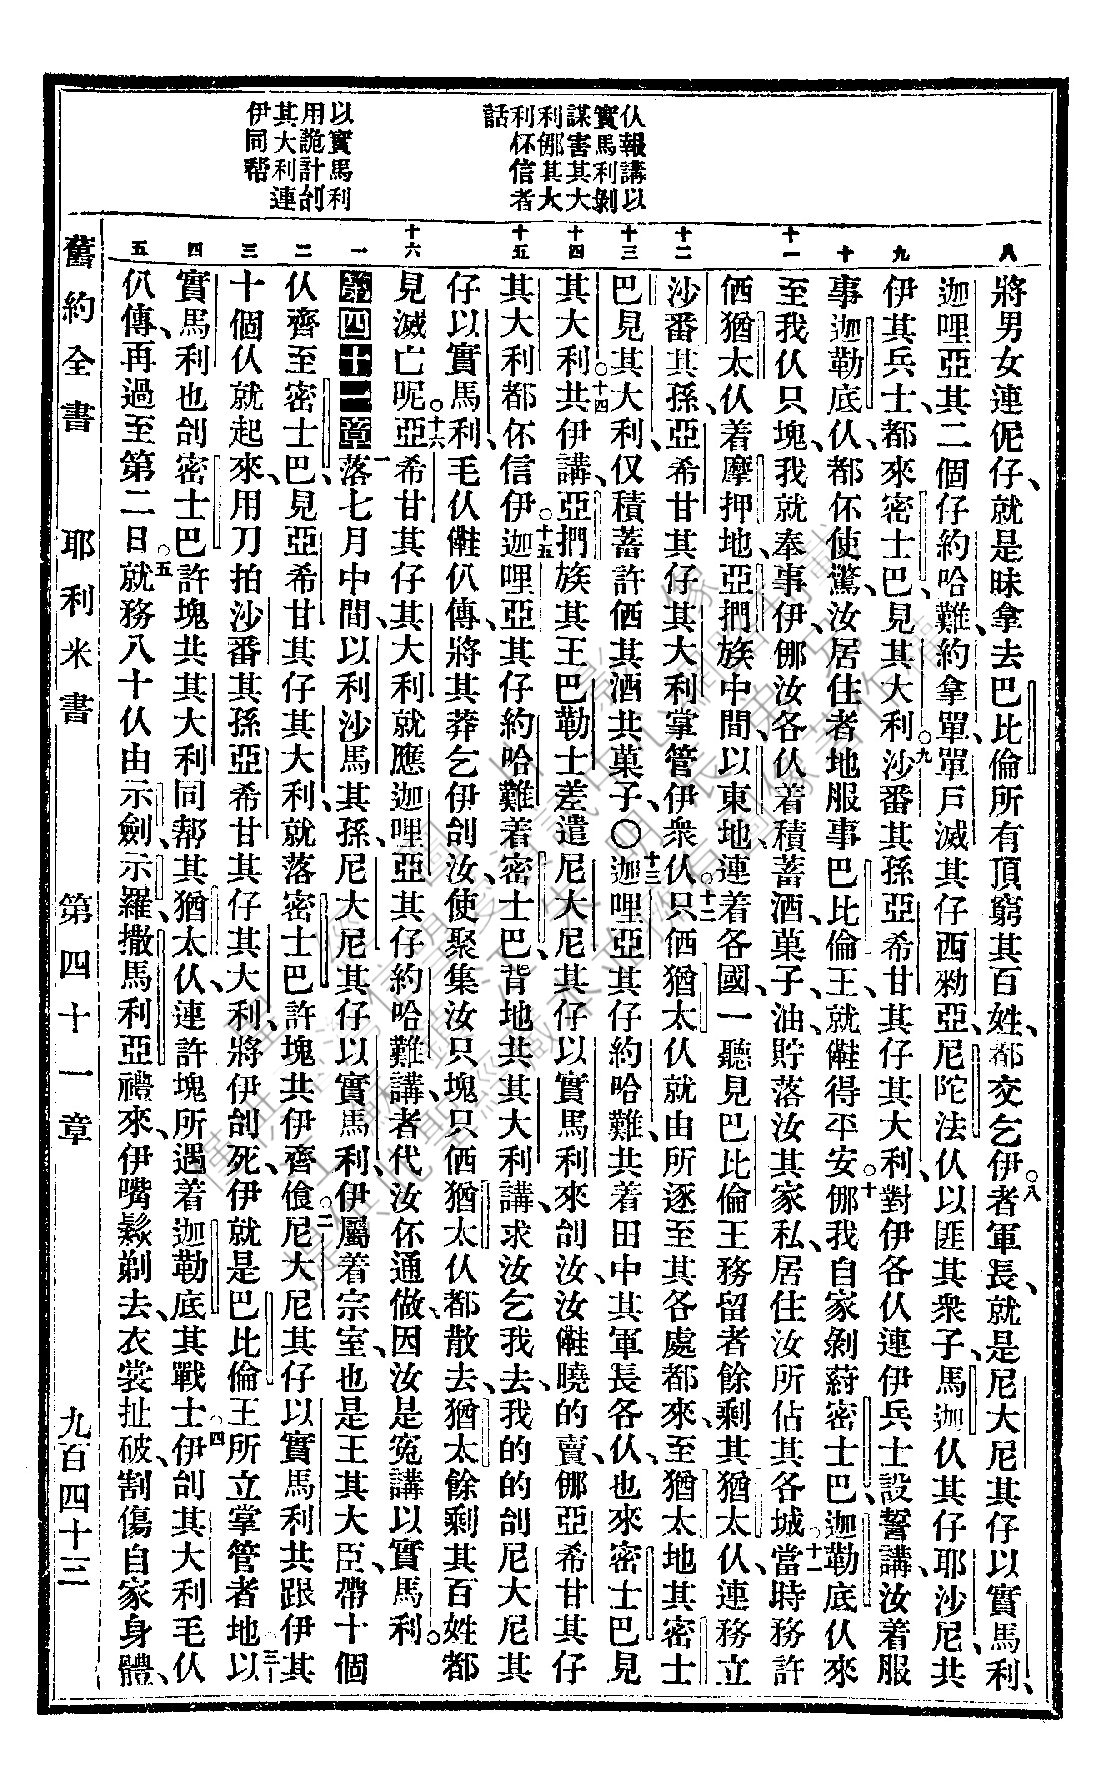 仫報講以
實馬利剝
謀害其大
利𠆧其大
利伓信者
話
以實馬利
用詭計刣
其大利連
伊同幫
八
九
十
十一
十二
十三
十四
十五
十六
一
二
三
四
五
將男女連伲仔、就是昧拿去巴比倫所有頂窮其百姓、都交乞伊。八者軍長、就是尼大尼其仔以實馬利、
迦哩亞其二個仔約哈難約拿單、單戶滅其仔西勑亞、尼陀法仫以匪其衆子、馬迦仫其仔耶沙尼、共
伊其兵士、都來密士巴、見其大利。九沙番其孫亞希甘其仔其大利、對伊各仫連伊兵士設誓講、汝着服
事迦勒底仫、都伓使驚、汝居住者地服事巴比倫王、就㒰得平安。十𠆧我自家剝蒔密士巴、迦勒底仫來
至我仫只塊、我就奉事伊、𠆧汝各仫着積蓄酒、菓子、油、貯落汝其家私、居住汝所佔其各城。十一當時務許
価猶太仫着摩押地、亞捫族中間、以東地、連着各國、一聽見巴比倫王務留者餘剩其猶太仫、連務立
沙番其孫、亞希甘其仔其大利掌管伊衆仫。十二只価猶太仫就由所逐至其各處都來、至猶太地其密士
巴見其大利、仅積蓄許価其酒共菓子、〇十三迦哩亞其仔約哈難、共着田中其軍長各仫、也來密士巴見
其大利。十四共伊講、亞捫族其王巴勒士差遣尼大尼其仔以實馬利來刣汝、汝㒰曉的賣、𠆧亞希甘其仔
其大利都伓信伊。十五迦哩亞其仔約哈難着密士巴、背地共其大利講、求汝乞我去、我的的刣尼大尼其
仔以實馬利、毛仫㒰仈傳、將其莽乞伊刣汝、使聚集汝只塊只価猶太仫都散去、猶太餘剩其百姓都
見滅亡呢。十六亞希甘其仔其大利就應迦哩亞其仔約哈難講、者代汝伓通做、因汝是冤講以實馬利。
第四十一章一落七月中間、以利沙馬其孫、尼大尼其仔以實馬利、伊屬着宗室、也是王其大臣、帶十個
仫齊至密士巴、見亞希甘其仔其大利、就落密士巴許塊共伊齊飡。二尼大尼其仔以實馬利共跟伊其
十個仫就起來、用刀拍沙番其孫亞希甘其仔其大利、將伊刣死、伊就是巴比倫王所立掌管者地。三以
實馬利也刣密士巴許塊共其大利同幫其猶太仫、連許塊所遇着迦勒底其戰士。四伊刣其大利毛仫
仈傳、再過至第二日、五就務八十仫由示劍、示羅、撒馬利亞禮來、伊嘴鬏剃去、衣裳扯破、割傷自家身體、
舊約全書　耶利米書　第四十一章　九百四十三